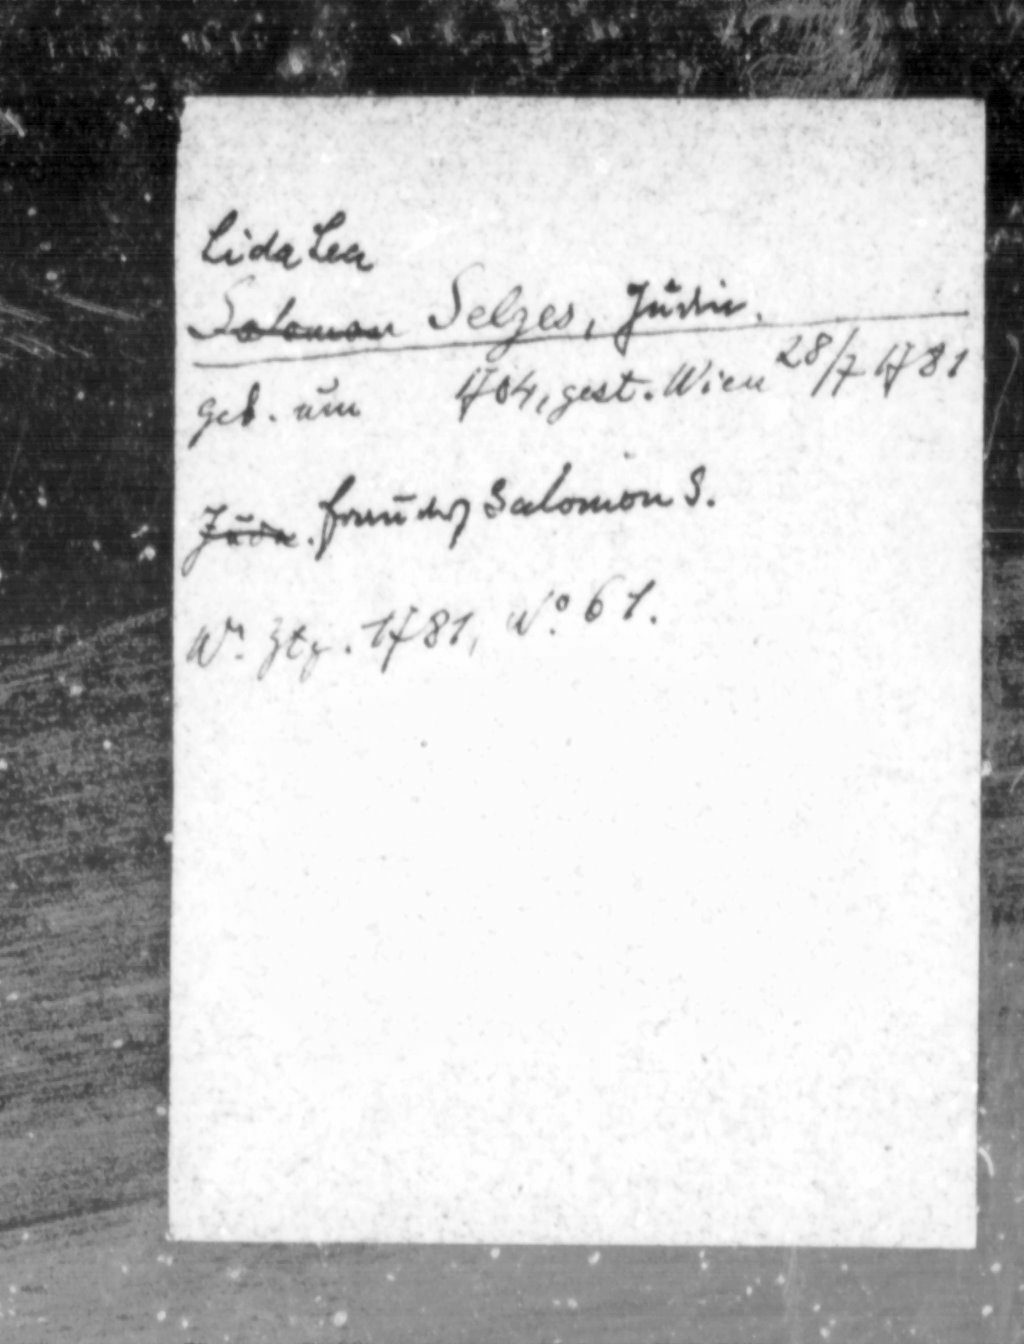 Lida Lea
Salomon Selzes, Jüdin.
geb. um 1704, gest. Wien 28/7 1781
Jude. Frau des Salomon S.
Wr. Ztg. 1781, No. 61.